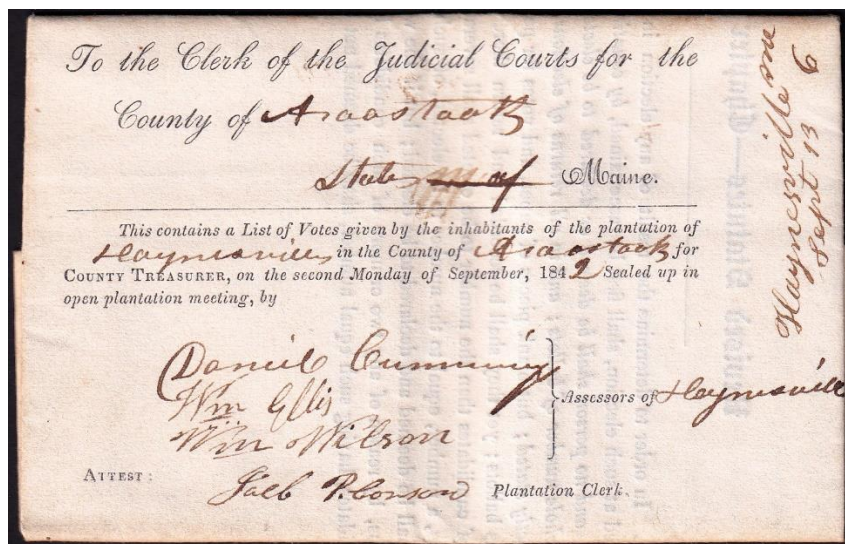 To the Clerk of the Judicial Courts for the
County of Aroostook
State of Maine.
This contains a List of Votes given by the inhabitants of the plantation of
Haynesville in the County of Aroostook for
COUNTY TREASURER, on the second Monday of September, 1842 Sealed up in
open plantation meeting, by
Daniel Cumming
Wm Ellis
Wm Wilson
Assessors of Haynesville
ATTEST:
P. Plantation Clerk.
Haynesville Me
Sept 13
6